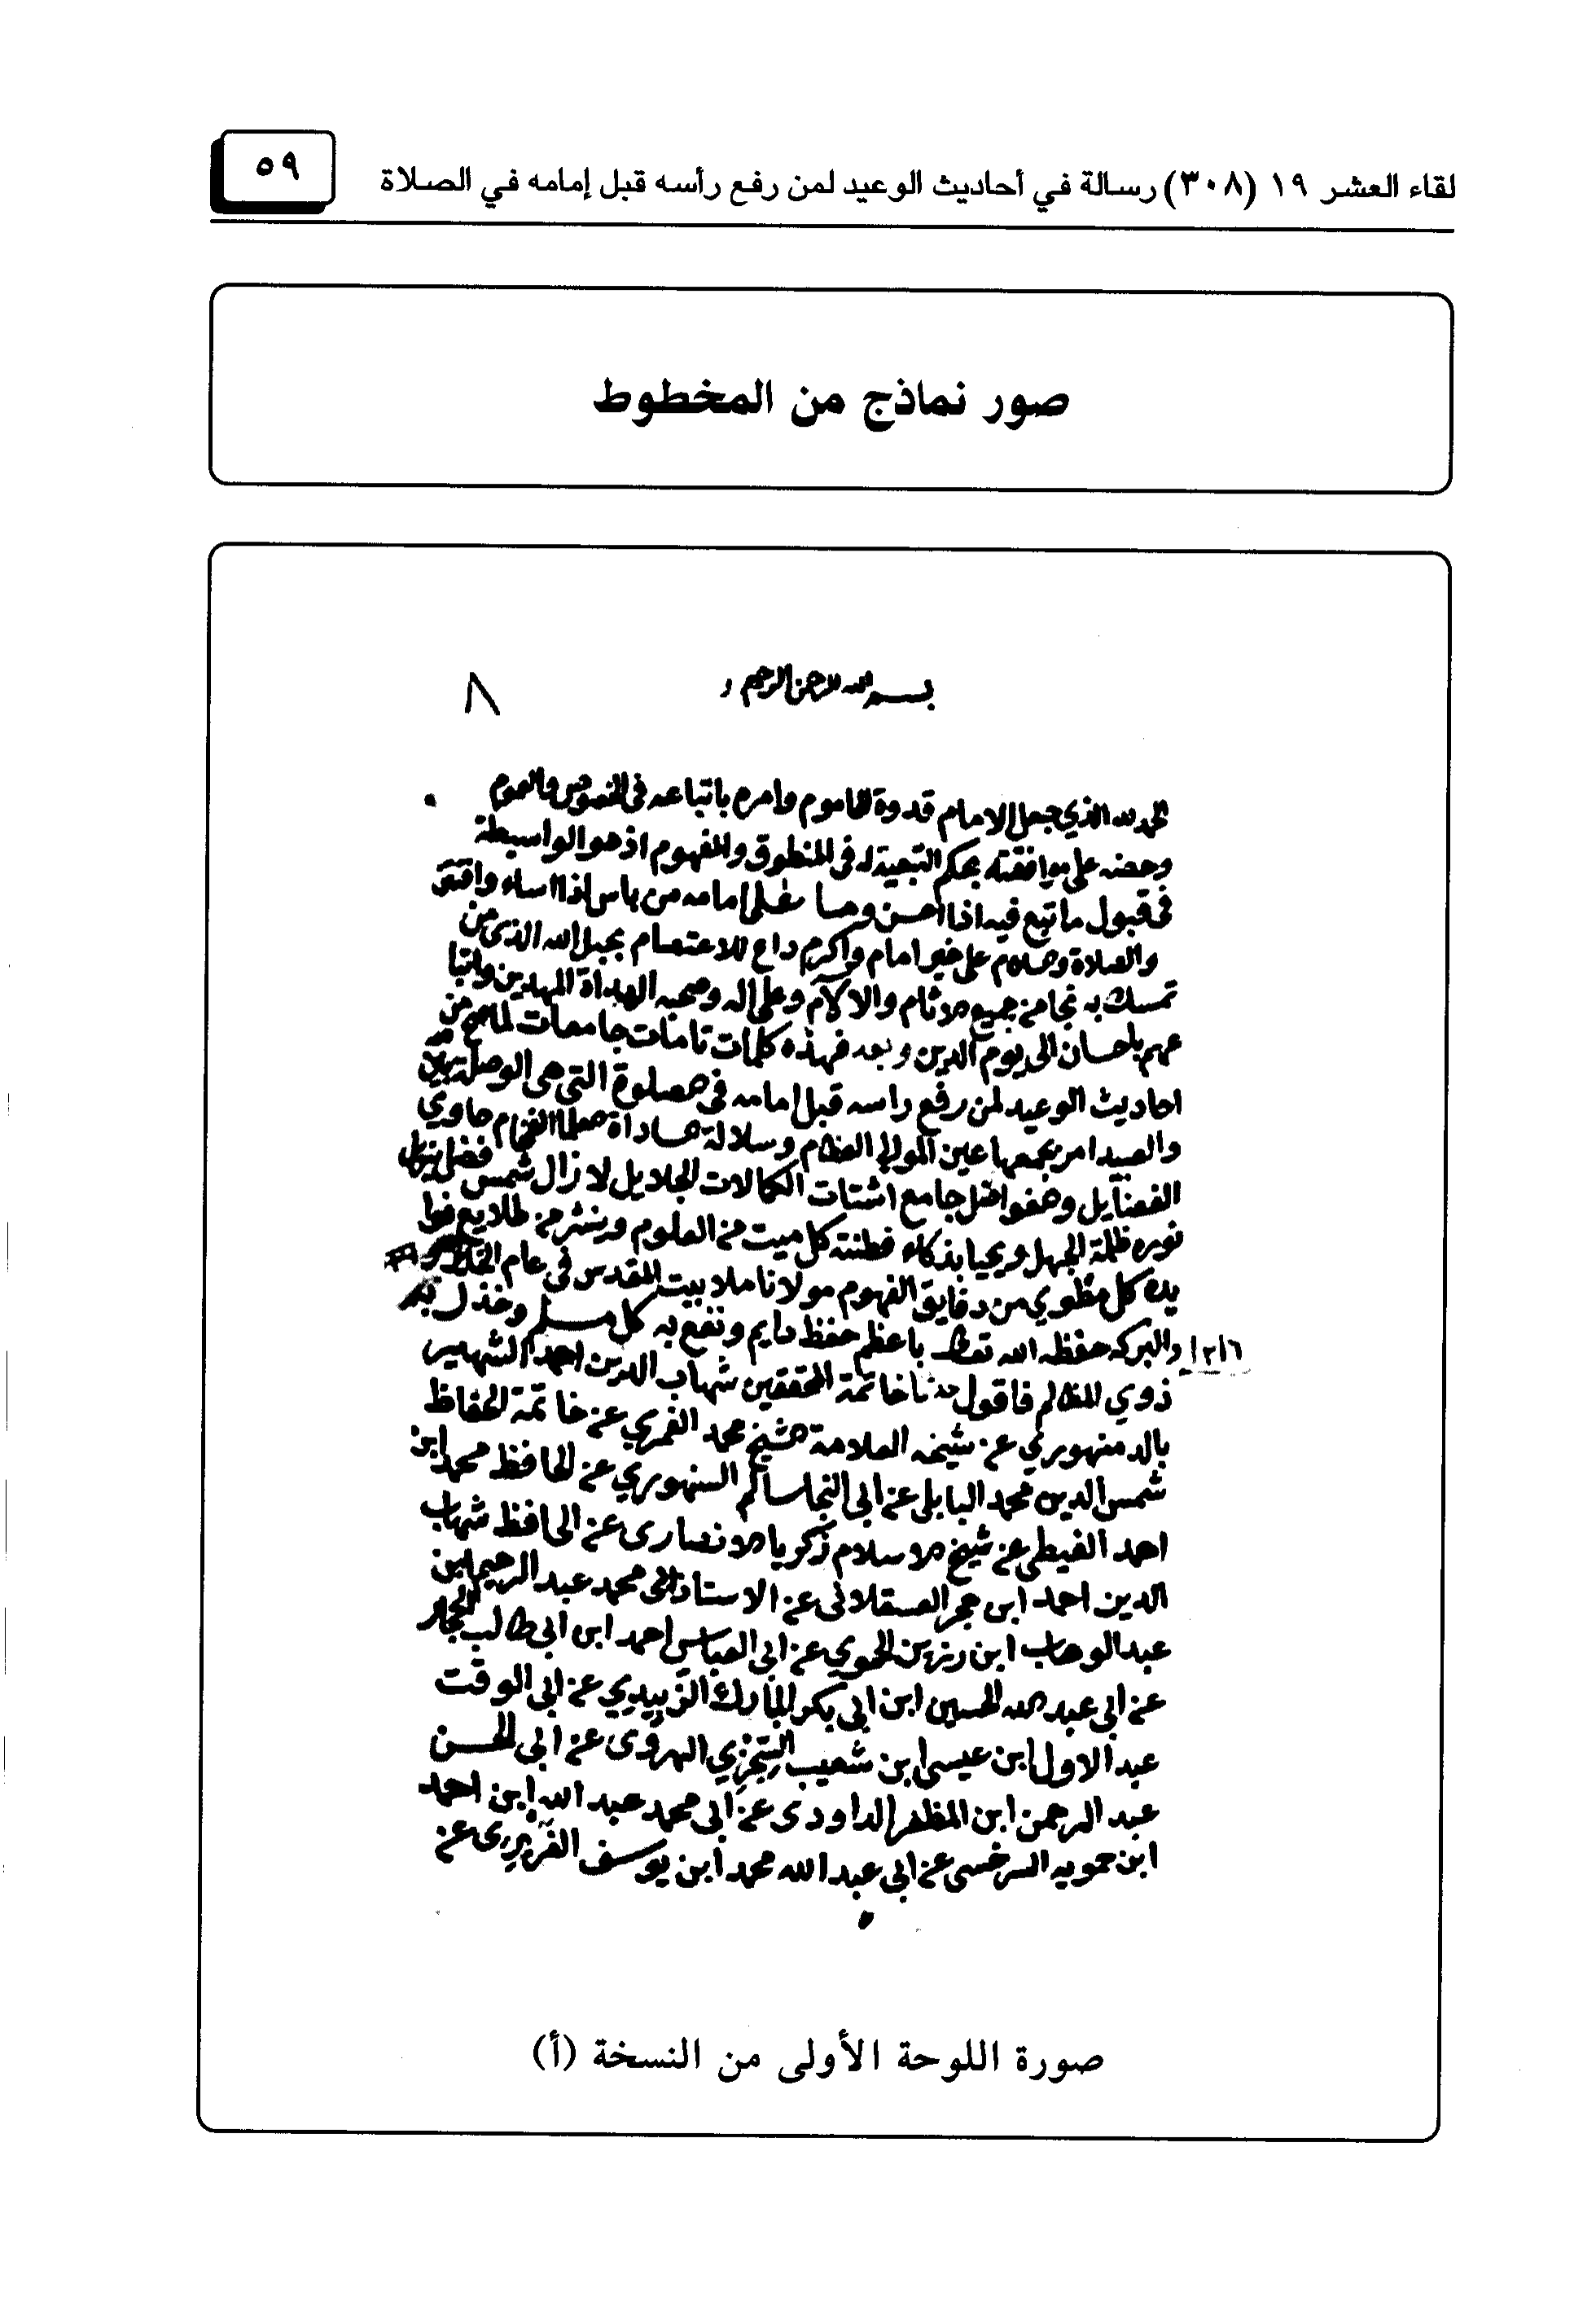 لقاء العشر ١٩ (٣٠٨) رسالة في أحاديث الوعيد لمن رفع رأسه قبل إمامه في الصلاة
٥٩
صور نماذج من المخطوط
بسم الله الرحمن الرحيم
٨
الحمد لله الذي جعل الامام قدوة للماموم وامره باتباعه في الخصوص والعموم
وحضه على موافقته بحكم التبعية له في المنطوق والمفهوم اذ هو الواسطة
في قبول ما تبع فيه اذا احسن وما على امامه من باس اذا اساء واقتفى
والصلاة والسلام على خير امام واكرم داع للاعتصام بحبل الله الذي من
تمسك به نجا من جميع الاثام والالام وعلى اله وصحبه الهداة المهدين واتبا
عهم باحسان الى يوم الدين وبعد فهذه كلمات تامات جامعات لما صح من
احاديث الوعيد لمن رفع راسه قبل امامه في الصلوة التي هي الوصل بين
والعبيد امر بجمعها عين الموالي العظام وسلالة السادة الفخام حاوي
الفضايل والفواضل جامع اشتات الكمالات الجلايل لا زال شمس فضل يزيل
نوره ظلمة الجهل ويحيا بذكاء فطنته كل ميت من العلوم وينشر من طلايع فوا
يده كل مطوي من دقايق الفهوم مولانا ملا بيت المقدس في عام
والبركه حفظه الله تعالى باعظم حفظ دايم ونفع به كل مسلم وخذل به
١٢١٦
ذوي المظالم فاقول حدثنا خاتمة المحققين شهاب الدين احمد الشهير
بالدمنهوري عن شيخه العلامة الشيخ محمد الغمري عن خاتمة الحفاظ
شمس الدين محمد البابلي عن ابي النجا سالم السنهوري عن الحافظ محمد ابن
احمد الغيطي عن شيخ الاسلام زكريا الانصارى عن الحافظ شهاب
الدين احمد ابن حجر العسقلانى عن الاستاذ ابى محمد عبد الرحيم ابن
عبد الوهاب ابن رزين الحموي عن ابي العباس احمد ابن ابي طالب الحجار
عن ابي عبد الله الحسين ابن ابي بكر المبارك الزبيدي عن ابي الوقت
عبد الاول ابن عيسى ابن شعيب السجزي الهروى عن ابي الحسن
عبد الرحمن ابن المظفر الداودى عن ابي محمد عبد الله ابن احمد
ابن حمويه السرخسي عن ابي عبد الله محمد ابن يوسف الفربرى عن
صورة اللوحة الأولى من النسخة (أ)